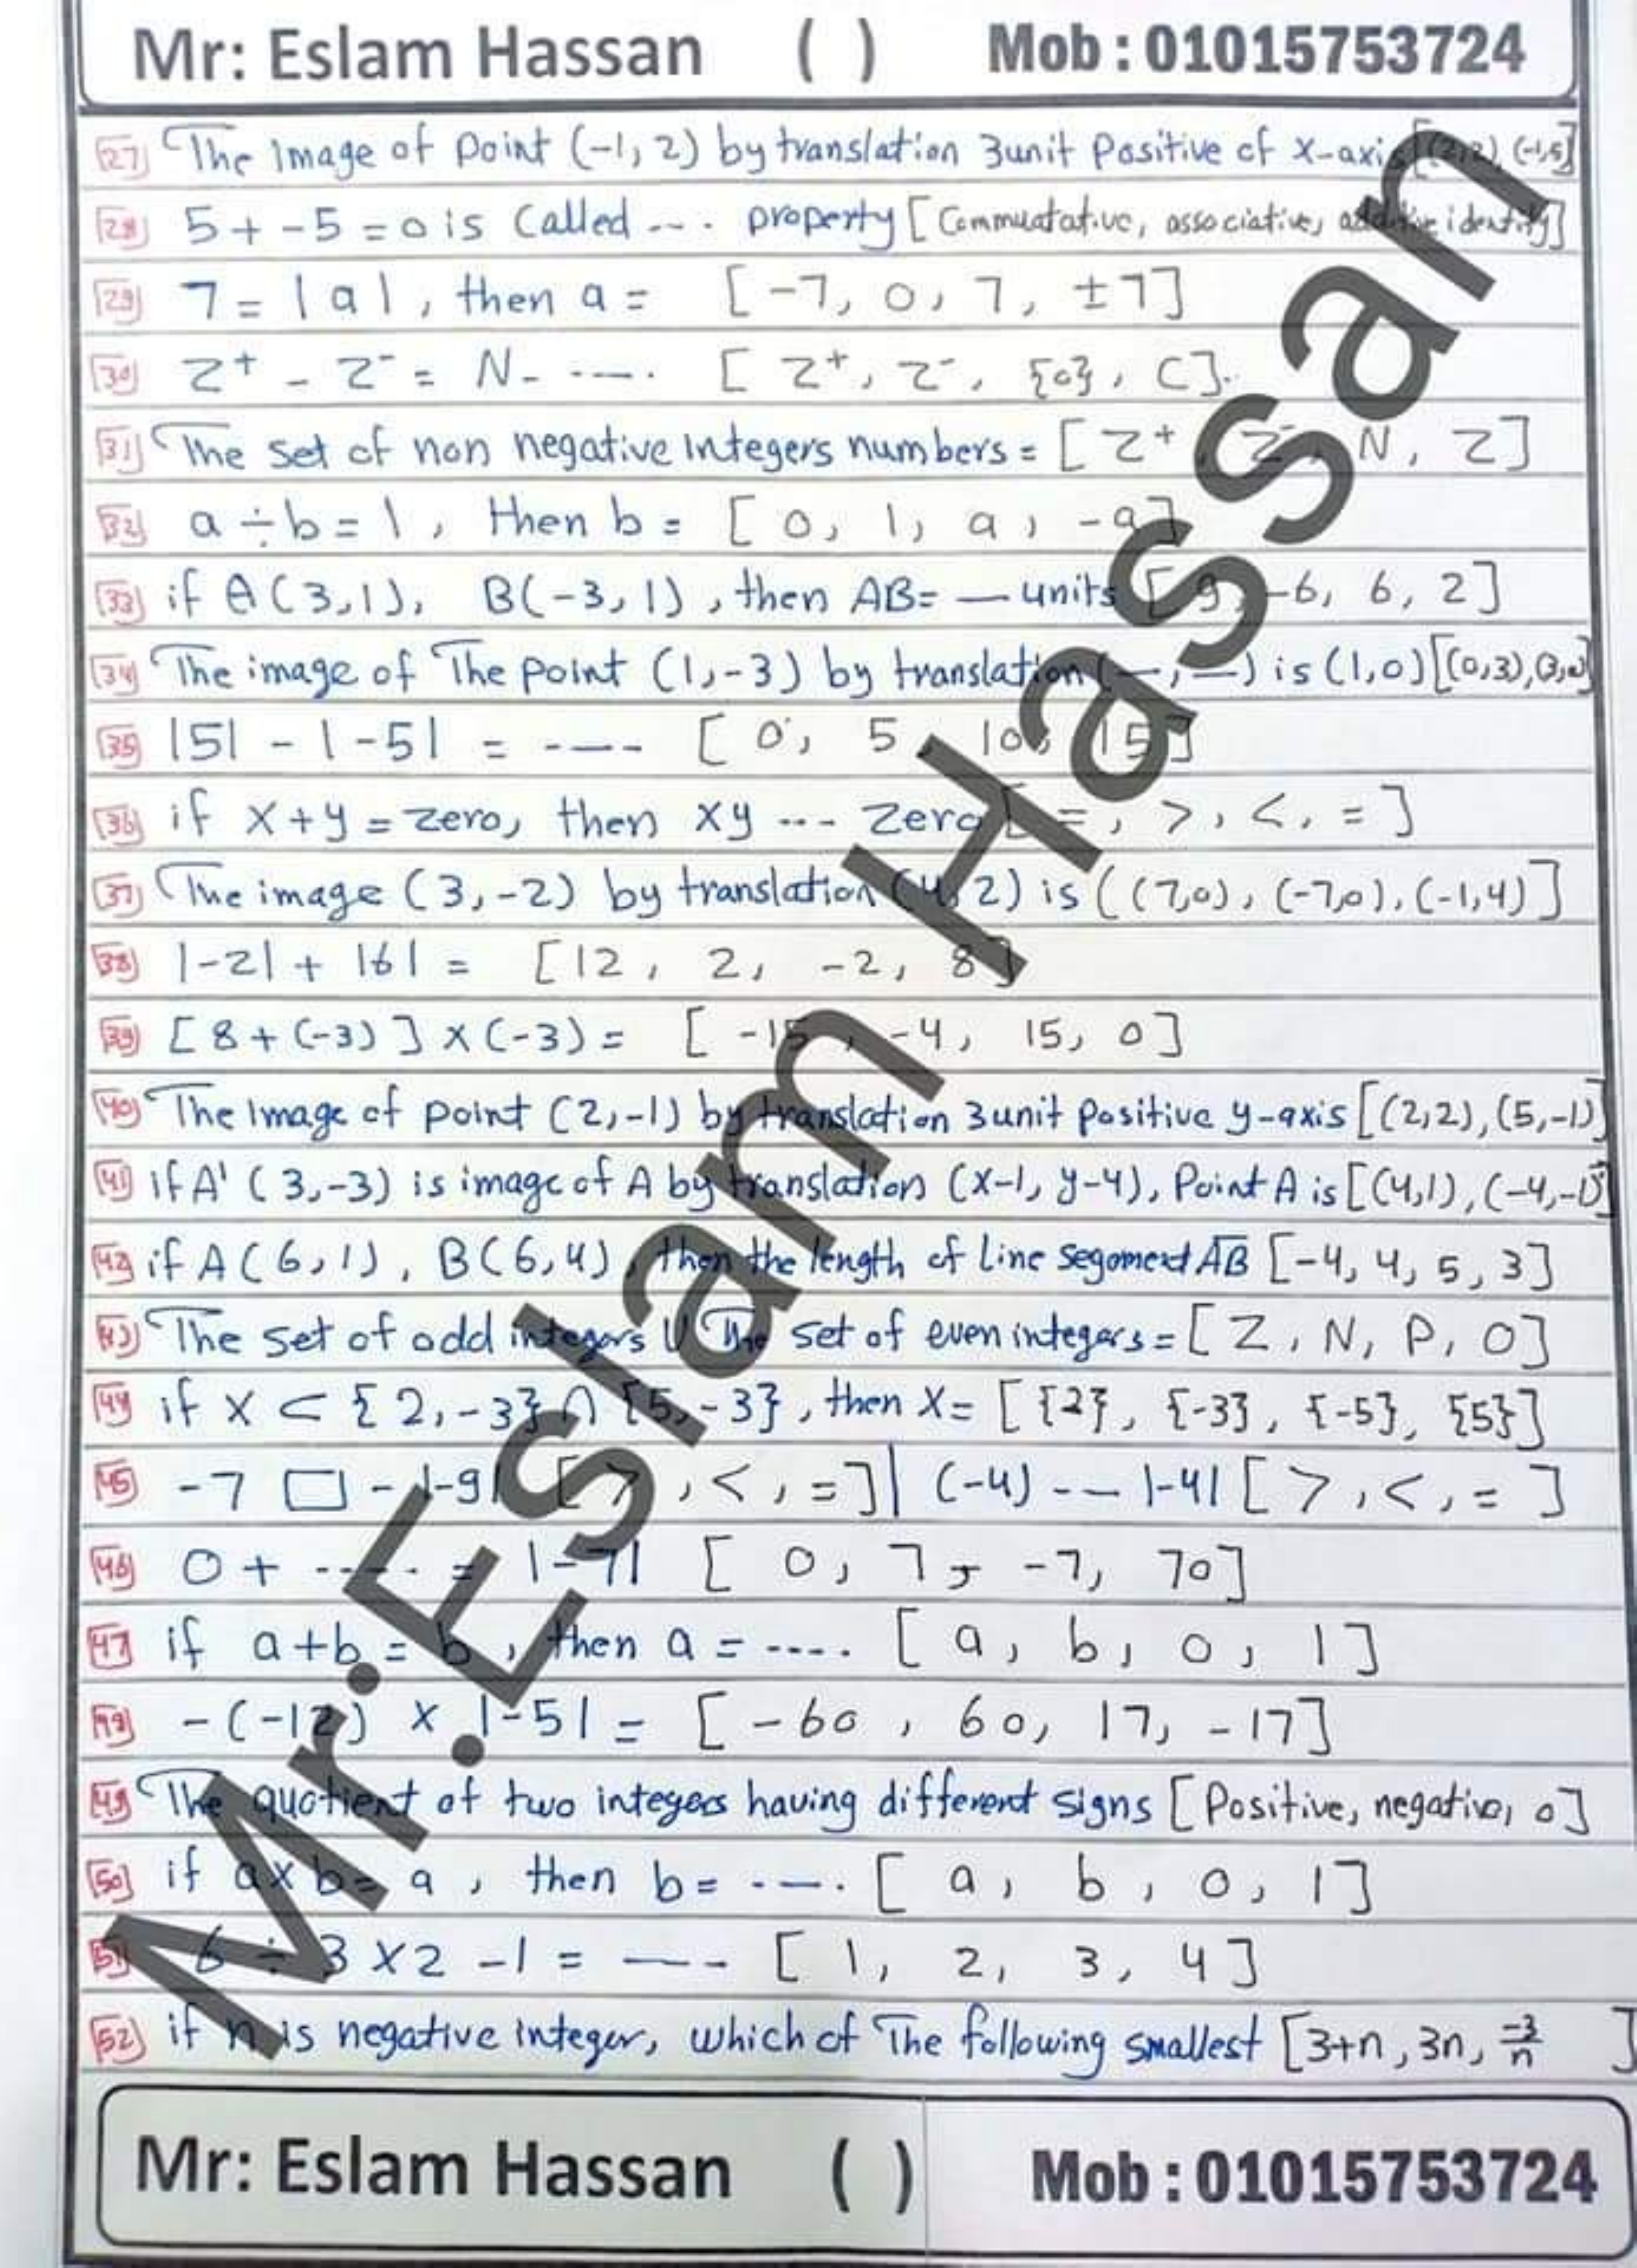 Mr: Eslam Hassan ( ) Mob : 01015753724
27 The Image of Point (-1, 2) by translation 3unit Positive of x-axis [(2,2), (-1,5]
28 5 + -5 = 0 is Called --- . property [Commuatative, associative, additive identity]
29 7 = |a|, then a = [-7, 0, 7, ±7]
30 Z⁺ - Z⁻ = N- ---- . [ Z⁺, Z⁻, {0}, C].
31 The set of non negative Integers numbers = [ Z⁺, Z⁻, N, Z]
32 a ÷ b = 1, then b = [ 0, 1, a, -a]
33 if A(3,1), B(-3,1), then AB= — units [ 9, -6, 6, 2]
34 The image of The point (1,-3) by translation (—,—) is (1,0) [(0,3),(3,0]
35 |5| - |-5| = ---- [ 0, 5, 10, 15]
36 if x+y = zero, then xy --- zero [ =, >, <, = ]
37 The image (3,-2) by translation (4,2) is ((7,0), (-7,0), (-1,4)]
38 |-2| + |6| = [12, 2, -2, 8]
39 [ 8 + (-3) ] x (-3) = [ -15, -4, 15, 0]
40 The Image of point (2,-1) by translation 3unit positive y-axis [(2,2),(5,-1)]
41 if A' (3,-3) is image of A by translation (x-1, y-4), Point A is [(4,1), (-4,-1)]
42 if A(6,1), B(6,4), then the length of Line Segoment AB [-4, 4, 5, 3]
43 The set of odd integers U The set of even integers = [ Z, N, P, O]
44 if X ⊂ {2,-3} ∩ {5,-3}, then X= [{2}, {-3}, {-5}, {5}]
45 -7 □ -|-9| [ >, <, =] | (-4) --- |-4| [ >, <, = ]
46 0 + ----- = |-7| [ 0, 7, -7, 70]
47 if a+b = b, then a = ---- . [ a, b, 0, 1]
48 -(-12) x |-5| = [ -60, 60, 17, -17]
49 The quotient of two integers having different signs [Positive, negative, 0]
50 if axb= a, then b= ---- . [ a, b, 0, 1]
51 6 ÷ 3 x 2 - 1 = ---- [ 1, 2, 3, 4]
52 if n is negative integer, which of The following smallest [3+n, 3n, -3/n ]
Mr: Eslam Hassan ( ) Mob : 01015753724
Mr.Eslam Hassan